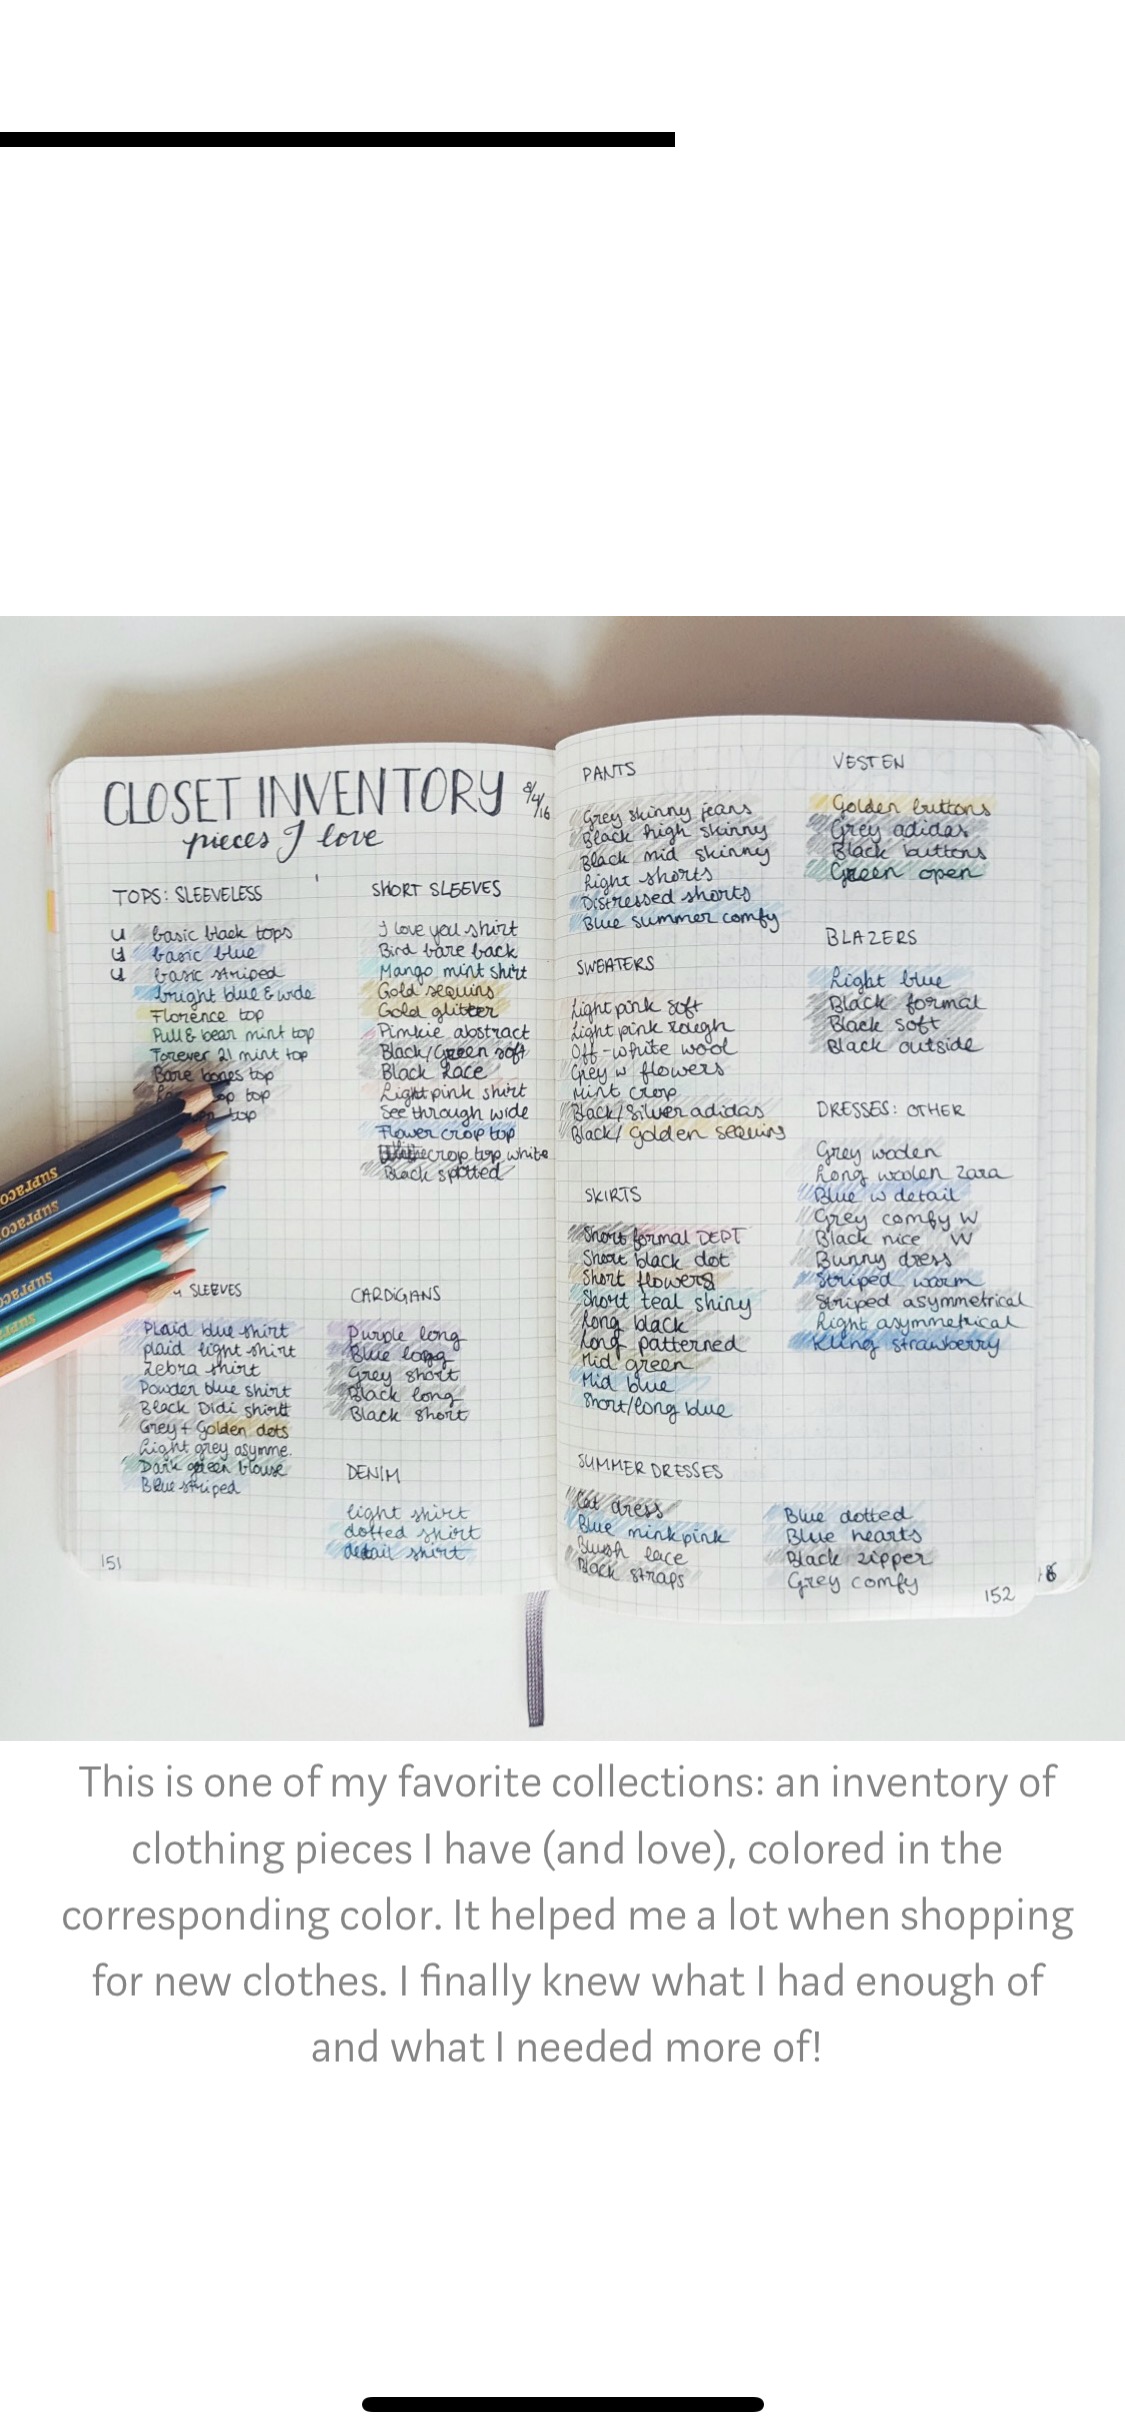 CLOSET INVENTORY 8/4/16
pieces I love
TOPS: SLEEVELESS
basic black tops
basic blue
basic striped
bright blue & wide
Florence top
Pull & bear mint top
Forever 21 mint top
Bare bones top
top
top
SHORT SLEEVES
I love you shirt
Bird bare back
Mango mint shirt
Gold sequins
Gold glitter
Pimkie abstract
Black/Green soft
Black lace
Light pink shirt
See through wide
Flower crop top
crop top white
Black spotted
SLEEVES
Plaid blue shirt
plaid light shirt
Zebra shirt
Powder blue shirt
Black Didi shirt
Grey + Golden dots
Light grey asymme.
Dark green blouse
Blue striped
CARDIGANS
Purple long
Blue long
Grey short
Black long
Black short
DENIM
light shirt
dotted shirt
detail shirt
151
PANTS
Grey skinny jeans
Black high skinny
Black mid skinny
Light shorts
Distressed shorts
Blue summer comfy
SWEATERS
Light pink soft
Light pink rough
Off-white wool
Grey w flowers
Mint crop
Black/Silver adidas
Black/ Golden sequins
SKIRTS
Short formal DEPT
Short black dot
Short flowers
Short teal shiny
Long black
Long patterned
Mid green
Mid blue
Short/long blue
SUMMER DRESSES
Cat dress
Blue minkpink
Blush lace
Black straps
Blue dotted
Blue hearts
Black zipper
Grey comfy
VESTEN
Golden buttons
Grey adidas
Black buttons
Green open
BLAZERS
Light blue
Black formal
Black soft
Black outside
DRESSES: OTHER
Grey woolen
Long woolen Zara
Blue w detail
Grey comfy W
Black nice W
Bunny dress
Striped warm
Striped asymmetrical
Light asymmetrical
Kling strawberry
152
supraco
supraco
supraco
This is one of my favorite collections: an inventory of
clothing pieces I have (and love), colored in the
corresponding color. It helped me a lot when shopping
for new clothes. I finally knew what I had enough of
and what I needed more of!